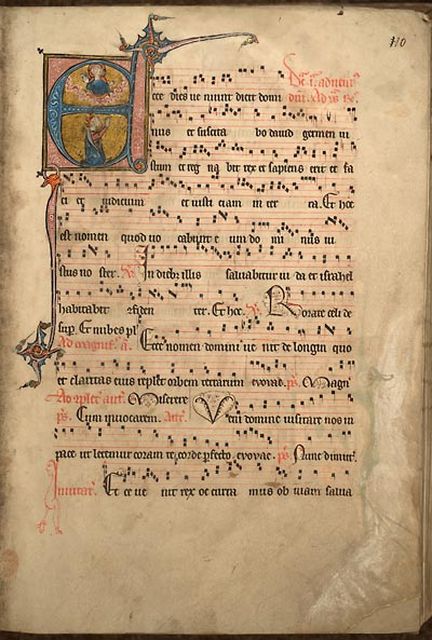 110
Ecce dies ueniunt dicit domi
nus et suscitabo dauid germen iu
stum et regnabit rex et sapiens erit et fa
ciet iudicium et iusticiam in terra. Et hoc
est nomen quod uocabunt eum dominus iu
stus noster. V. In diebz illis saluabitur iuda et israhel
habitabit fidenter. Et hoc. V. Rorate celi de
sup Et nubes pl
Ad magnif. a. Ecce nomen domini uenit de longinquo
et claritas eius replet orbem terrarum euouae. ps. Magn
Miserere Veni domine uisitare nos in
ps. Cum inuocarem. Ant.
pace ut letemur coram te corde perfecto euouae. ps. Nunc dimitt.
Inuitat. Ecce uenit rex occurramus obuiam salua